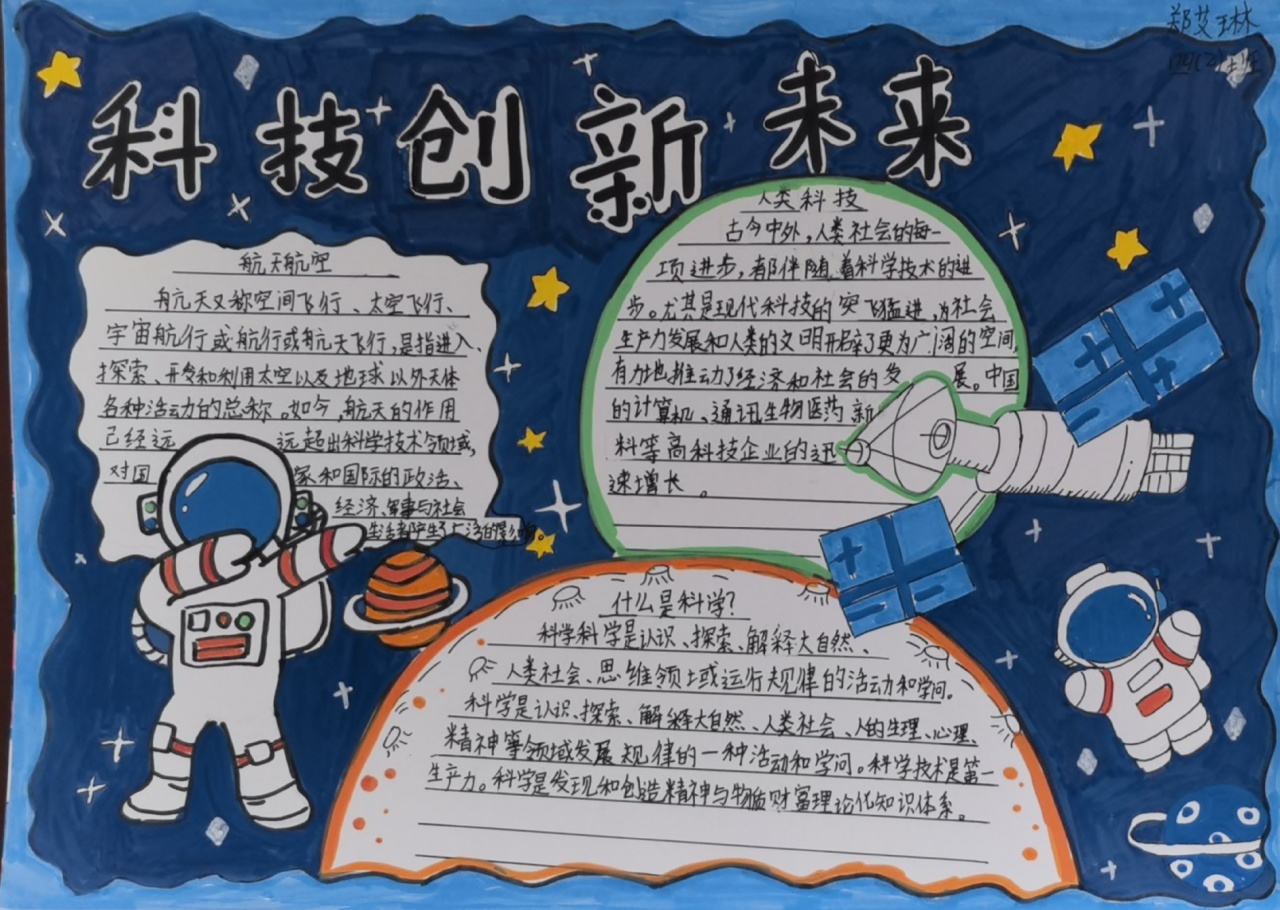 郑艾琳
四(2)班
科技创新未来
航天航空
航天又称空间飞行、太空飞行、
宇宙航行或航行或航天飞行,是指进入、
探索、开发和利用太空以及地球以外天体
各种活动的总称。如今,航天的作用
己经远 远超出科学技术领域,
对国 家和国际的政治、
经济、军事与社会
生活都产生了广泛的影响。
人类科技
古今中外,人类社会的每一
项进步,都伴随着科学技术的进
步。尤其是现代科技的突飞猛进,为社会
生产力发展和人类的文明开辟了更为广阔的空间,
有力地推动了经济和社会的发 展。中国
的计算机、通讯生物医药新
料等高科技企业的迅
速增长。
什么是科学?
科学科学是认识、探索、解释大自然、
人类社会、思维领域或运行规律的活动和学问。
科学是认识、探索、解释大自然、人类社会、人的生理、心理、
精神等领域发展规律的一种活动和学问。科学技术是第一
生产力。科学是发现和创造精神与物质财富理论化知识体系。